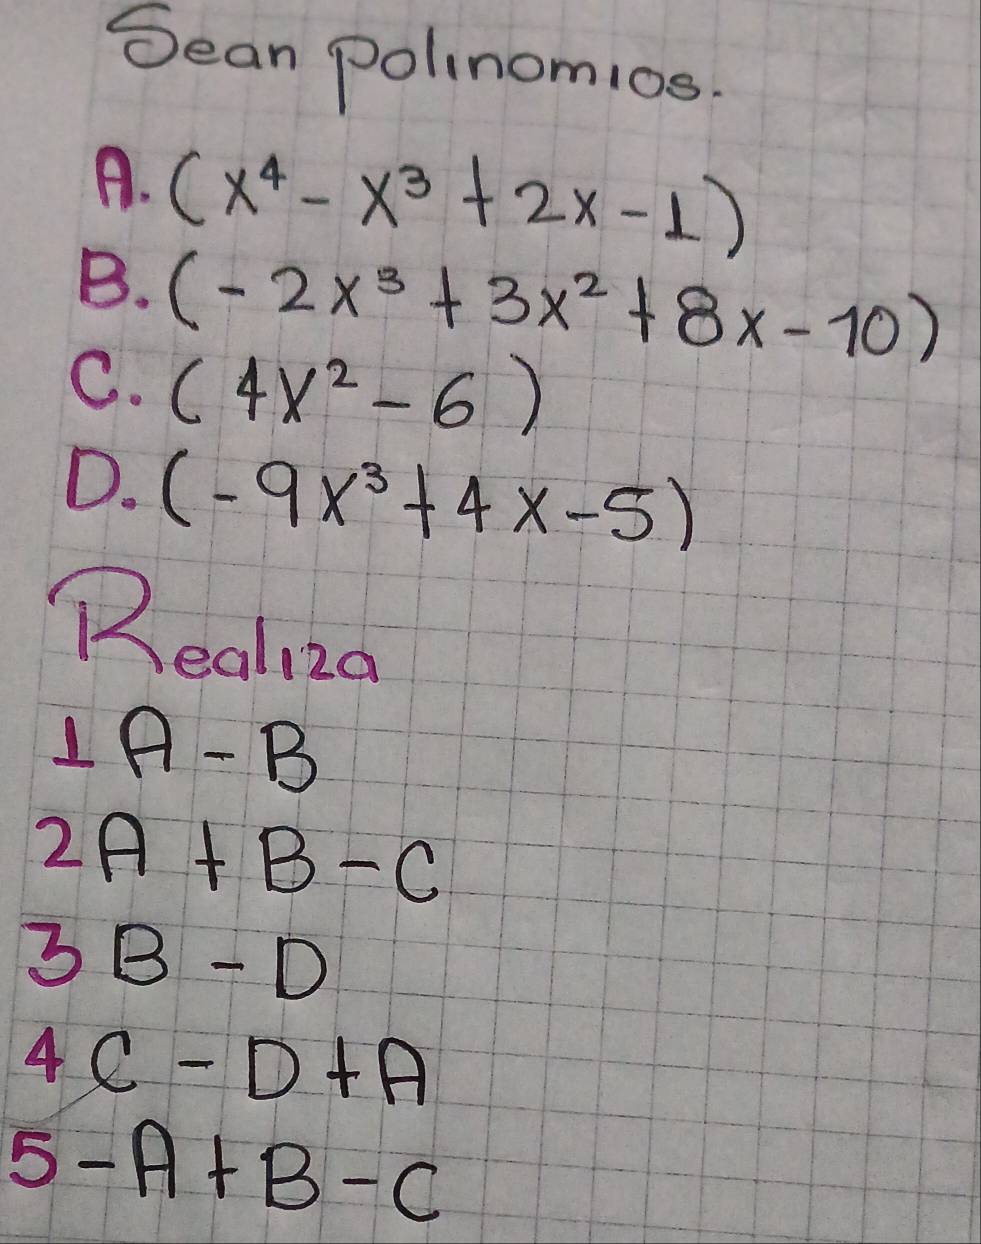 Sean polinomios.
A. (x⁴ - x³ + 2x - 1)
B. (-2x³ + 3x² + 8x - 10)
C. (4x² - 6)
D. (-9x³ + 4x - 5)
Realiza
1 A - B
2 A + B - C
3 B - D
4 C - D + A
5 - A + B - C